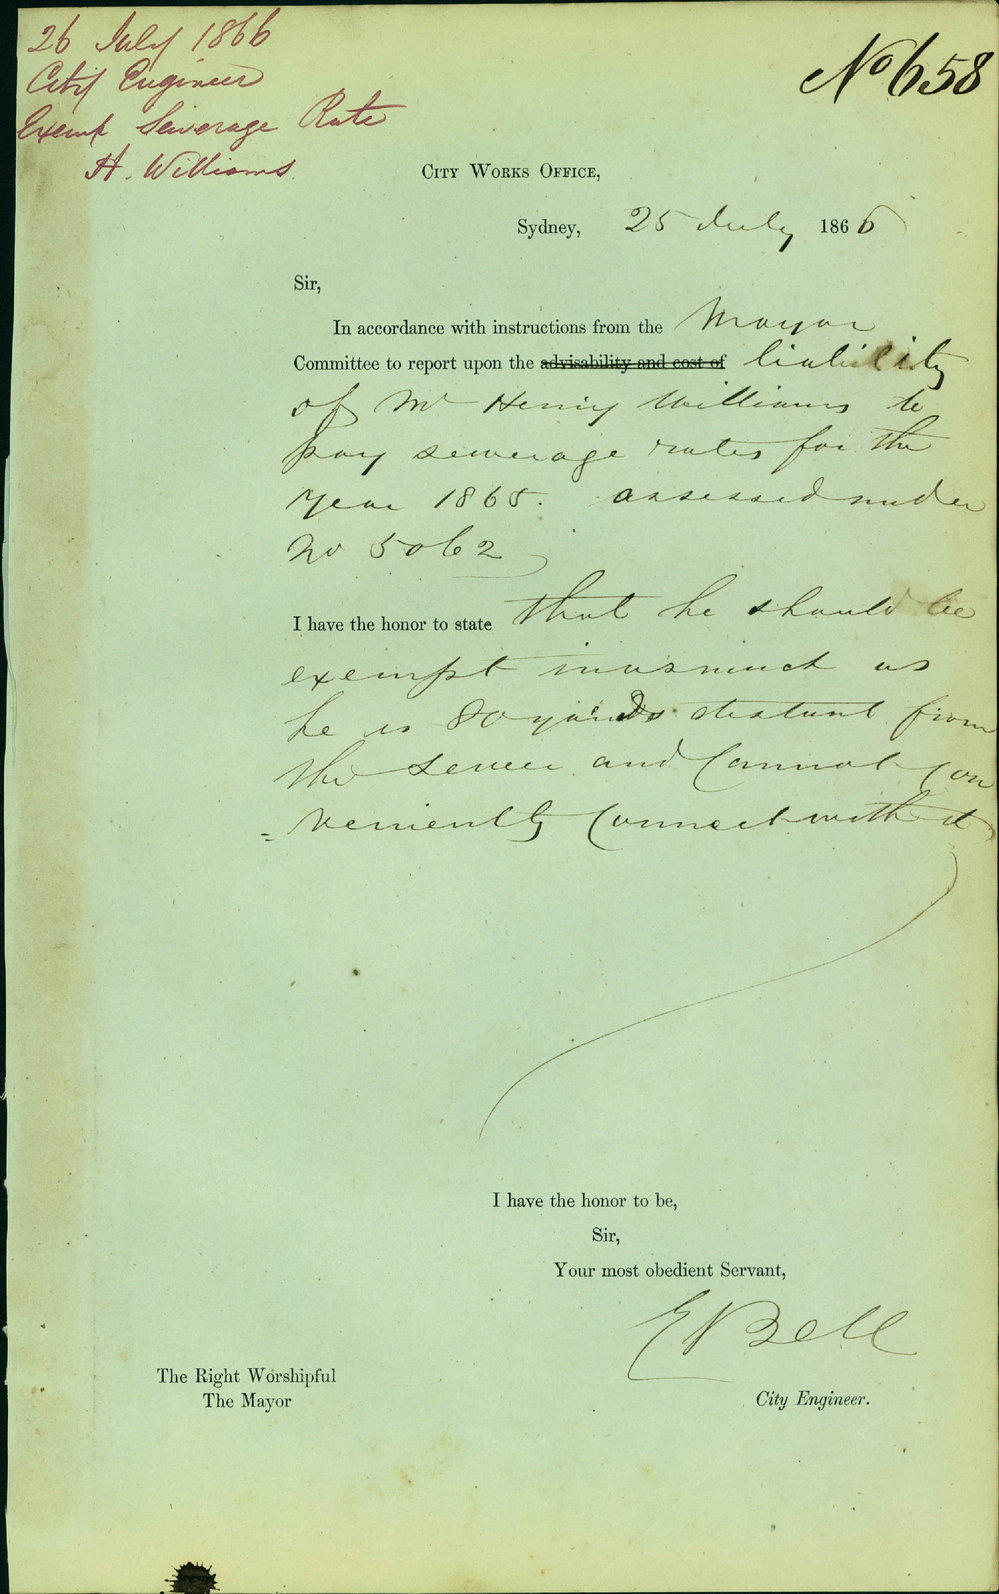 26 July 1866
City Engineer
Exempt Sewerage Rate
H. Williams
No 658
City Works Office,
Sydney, 25 July 1866
Sir,
In accordance with instructions from the Mayor
Committee to report upon the advisability and cost of liability
of Mr Henry Williams to
pay sewerage rates for the
year 1865. assessed under
No 5062
I have the honor to state that he should be
exempt inasmuch as
he is 80 yards distant from
the sewer and cannot con
= veniently connect with it
I have the honor to be,
Sir,
Your most obedient Servant,
E Bell
The Right Worshipful
The Mayor
City Engineer.